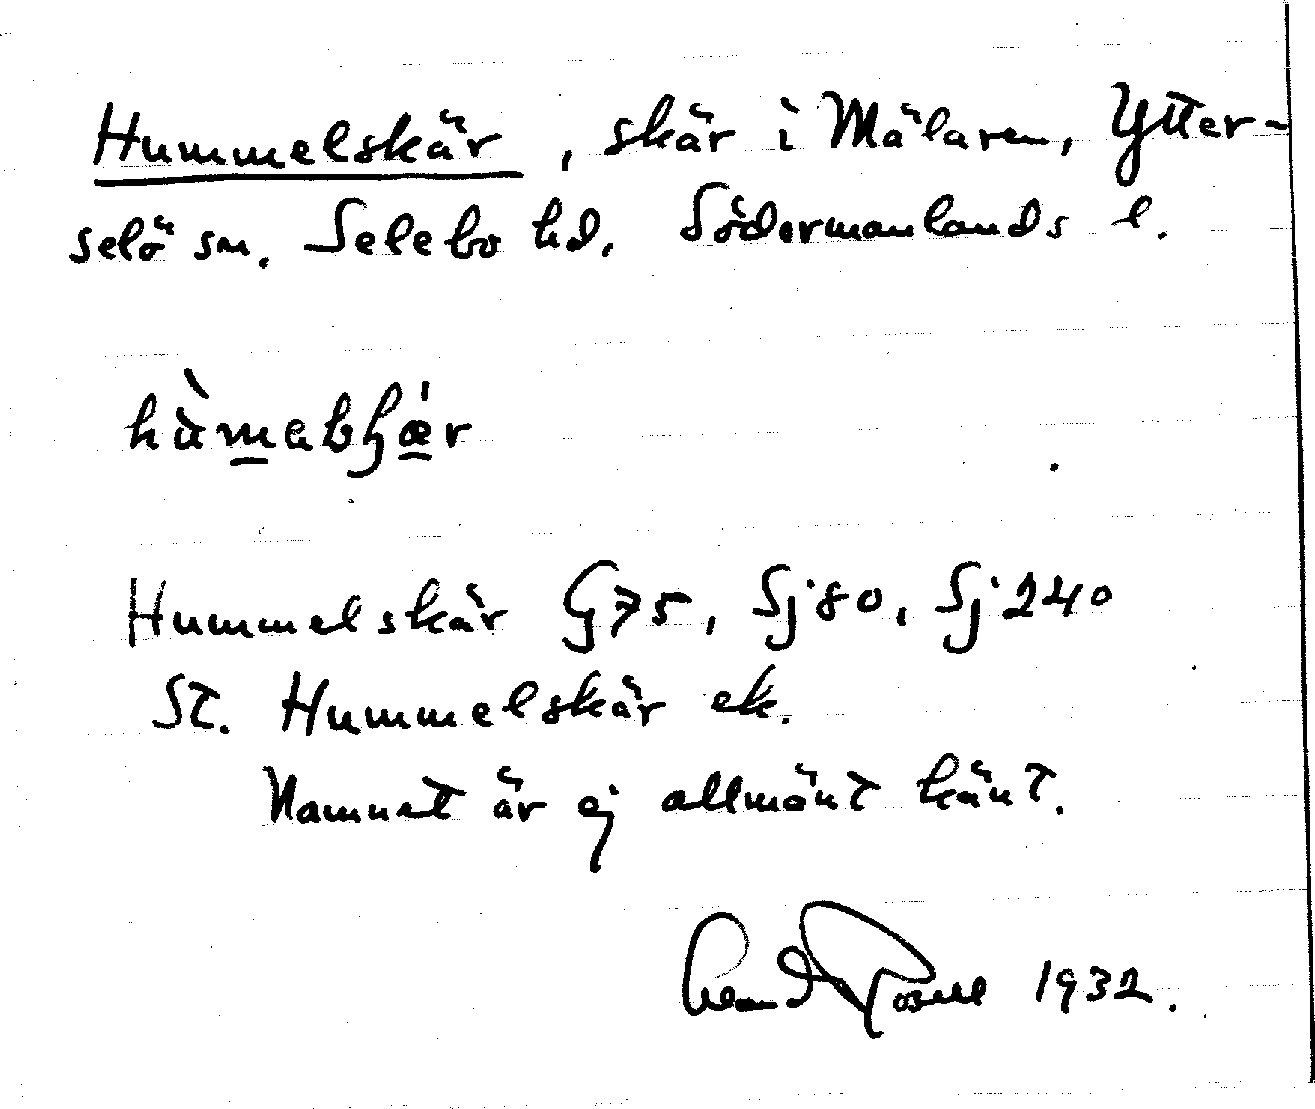 Hummelskär, skär i Mälaren, Ytter-
selö sn. Selebo hd. Södermanlands l.
Hummelskär G75, Sj 80, Sj 240
St. Hummelskär ek.
Namnet är ej allmänt känt.
1932.